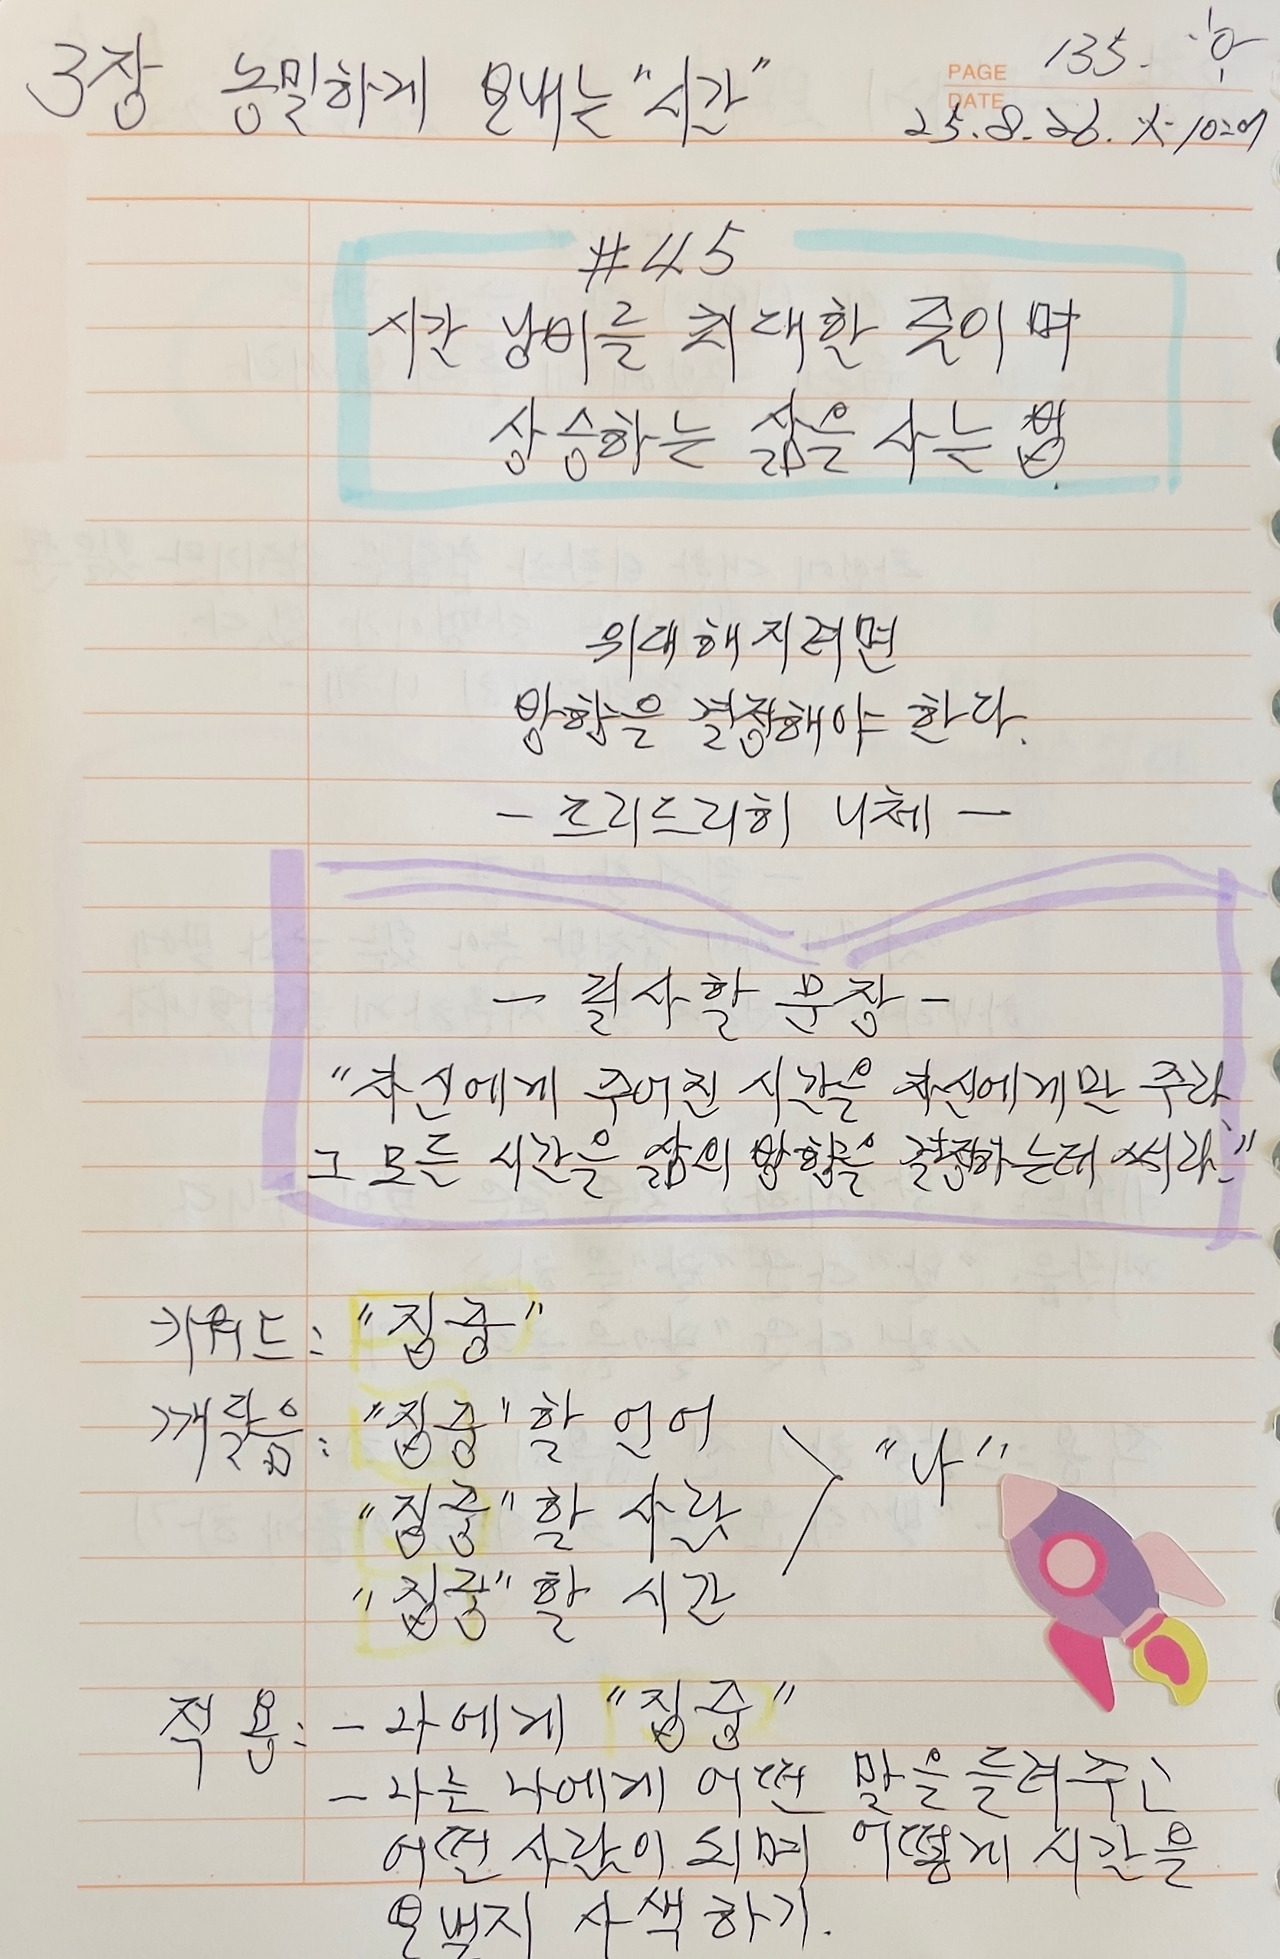 3장 농밀하게 보내는 "시간"
PAGE 135.
DATE 25.8.26. 火
#45
시간 낭비를 최대한 줄이며
상승하는 삶을 사는 법.
위대해지려면
방향을 결정해야 한다.
- 프리드리히 니체 -
- 필사할 문장 -
"자신에게 주어진 시간을 자신에게만 주라.
그 모든 시간을 삶의 방향을 결정하는데 써라."
키워드: "집중"
깨달음: "집중"할 언어
"나"
"집중"할 사람
"집중"할 시간
적용: - 나에게 "집중"
- 나는 나에게 어떤 말을 들려주는
어떤 사람이 되며 어떻게 시간을
보낼지 사색하기.